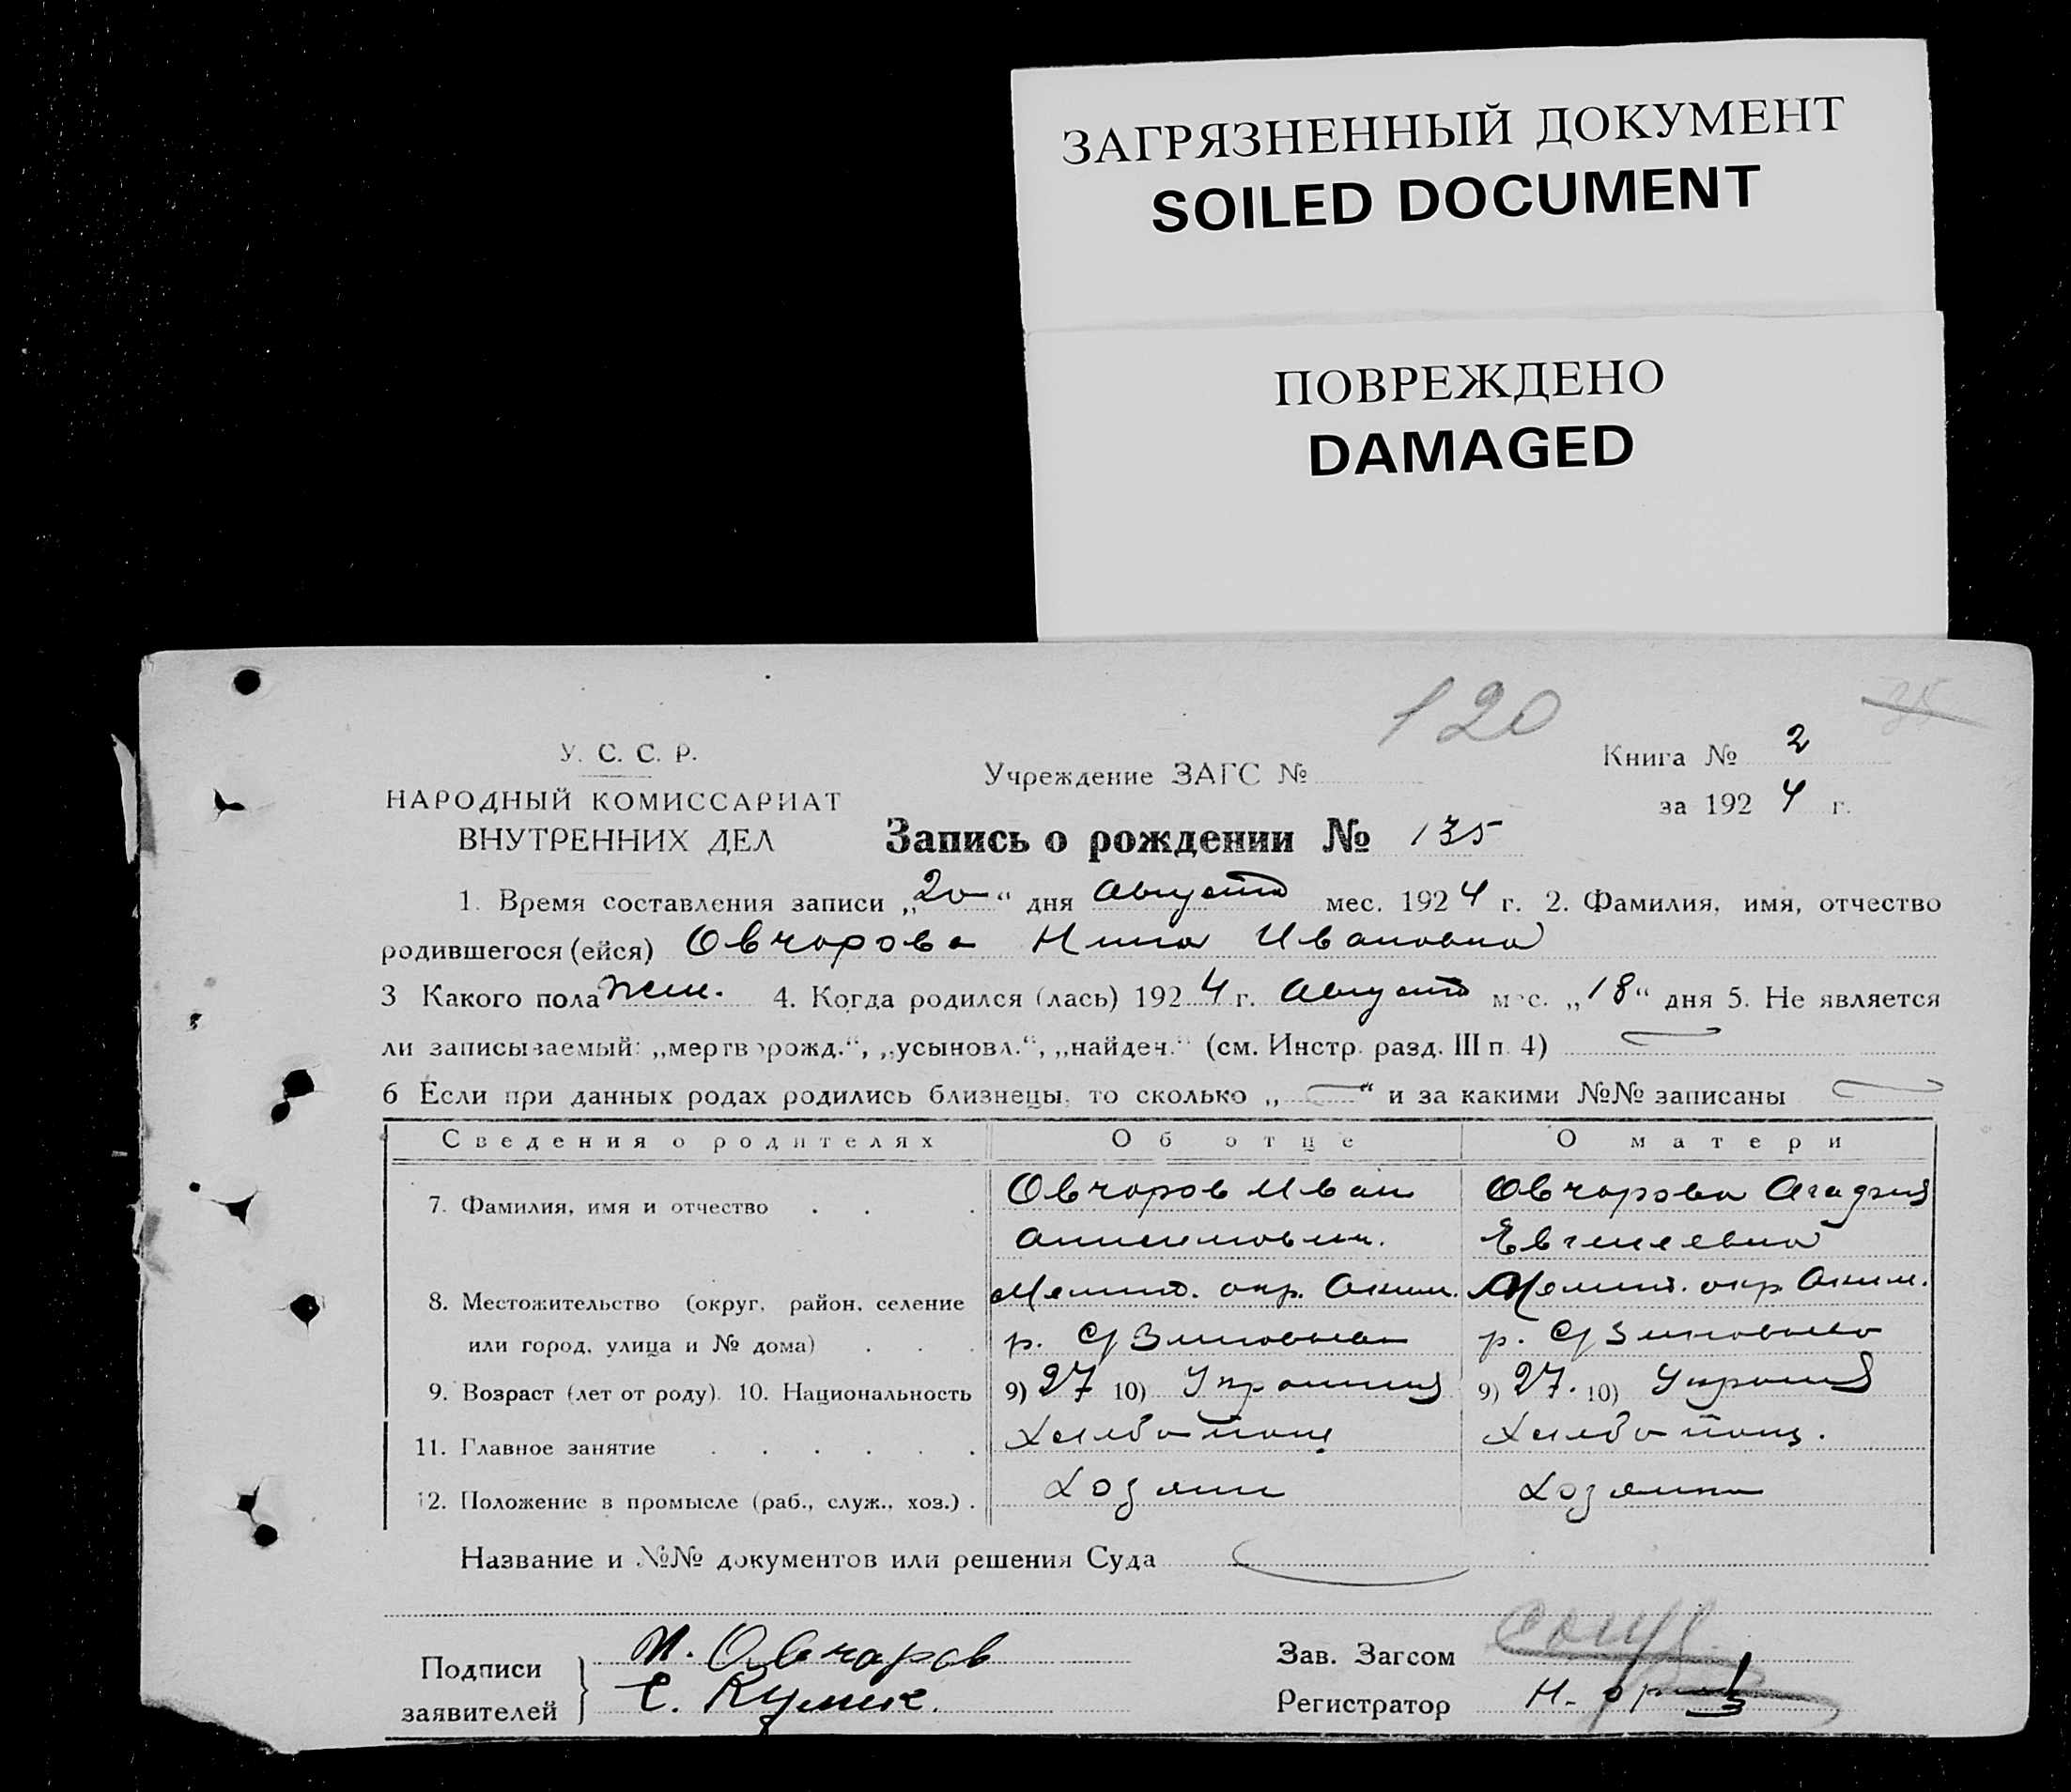 ЗАГРЯЗНЕННЫЙ ДОКУМЕНТ
SOILED DOCUMENT
ПОВРЕЖДЕНО
DAMAGED
120
35
У. С. С. Р.
НАРОДНЫЙ КОМИССАРИАТ
ВНУТРЕННИХ ДЕЛ
Учреждение ЗАГС №
Книга № 2
за 1924 г.
Запись о рождении № 135
1. Время составления записи „20“ дня Августа мес. 1924 г. 2. Фамилия, имя, отчество
родившегося (ейся) Овчарова Нина Ивановна
3 Какого пола жен. 4. Когда родился (лась) 1924 г. Августа мес. „18“ дня 5. Не является
ли записываемый: „мертворожд.“, „усыновл.“, „найден.“ (см. Инстр. разд. III п. 4)
6 Если при данных родах родились близнецы, то сколько „—“ и за какими №№ записаны
Сведения о родителях Об отце О матери
7. Фамилия, имя и отчество . . . Овчаров Иван Овчарова Агафия
Анисимович. Евгенеевна
8. Местожительство (округ, район, селение Мелит. окр. Аким. Мелит. окр Аким.
или город, улица и № дома) . . . р. С/ Зиновьево р. С/ Зиновьево
9. Возраст (лет от роду). 10. Национальность 9) 27 10) 9) 27. 10)
11. Главное занятие . . . . . . Хлебопашец Хлебопашц.
12. Положение в промысле (раб., служ., хоз.) . Хозяин Хозяйка
Название и №№ документов или решения Суда
Подписи
заявителей
И. Овчаров
С. Кулик.
Зав. Загсом
Регистратор